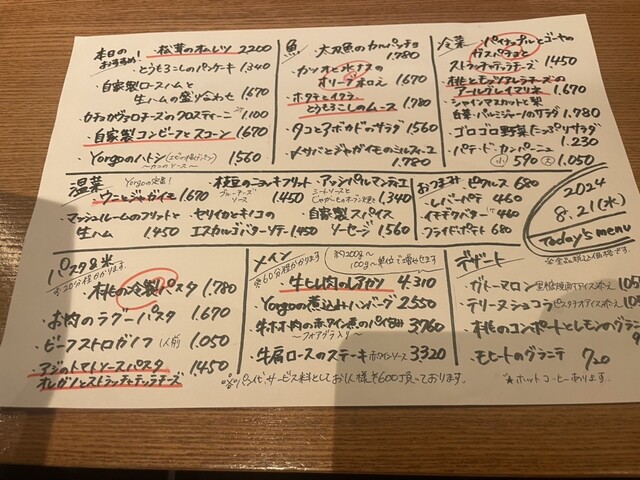 本日のおすすめ!
・松茸のオムレツ 2200
・とうもろこしのパンケーキ 1340
・自家製ロースハムと
生ハムの盛り合わせ 1670
・カチョカヴァロチーズのクロスティーニ 1100
・自家製コンビーフとスコーン 1670
・Yorgoのハトシ 1560
魚
・太刀魚のカルパッチョ 1,670
・カツオと水ナスの
オリーブ和え 1670
・ホタテとイクラ
とうもろこしのムース 1780
・タコとアボカドのサラダ 1560
・〆サバとジャガイモのミルフィーユ 1.780
冷菜
・パイナップルとゴーヤの
ガスパチョと
ストラッチャテッラチーズ 1450
・桃とモッツアレラチーズの
アールグレイマリネ 1,670
・シャインマスカットと梨
白菜・パルミジャーノのサラダ 1.780
・ゴロゴロ野菜たっぷりサラダ 1.230
・パテ・ド・カンパーニュ
小 590 大 1.050
温菜
Yorgoの定番!
・ウニとジャガイモ 1.670
・マッシュルームのフリットと
生ハム 1450
・枝豆のニョッキフリット
ブルーチーズソース 1.450
・セリイカとキノコの
エスカルゴバターソテー 1.450
・アッシパルマンティエ 1450
・自家製スパイス
ソーセージ 1560
おつまみ
・ピクルス 680
・レバーパテ 460
・イチヂクバター 440
・フライドポテト 680
2024
8.21(水)
Today's menu
パスタ&米
※20分程かかります。
・桃の冷製パスタ 1.780
・お肉のラグーパスタ 1.670
・ビーフストロガノフ 1人前 1.050
・アジのトマトソースパスタ 1450
オレガノとストラッチャテッラチーズ
メイン
※60分程かかります
約200g〜
100g単位で増やせます
・牛もも肉のレアカツ 4.310
・Yorgoの煮込みハンバーグ 2550
・牛ホホ肉の赤ワイン煮のパイ包み 3760
〜フォアグラ入り〜
・牛肩ロースのステーキ 赤ワインソース 3320
※パン代、サービス料としてお1人様¥600頂いております。
デザート
・ガトーマロン
・テリーヌショコラ ピスタチオアイス添え
・桃のコンポートとレモンのグラニテ
・モヒートのグラニテ 720
★ホットコーヒーあります。